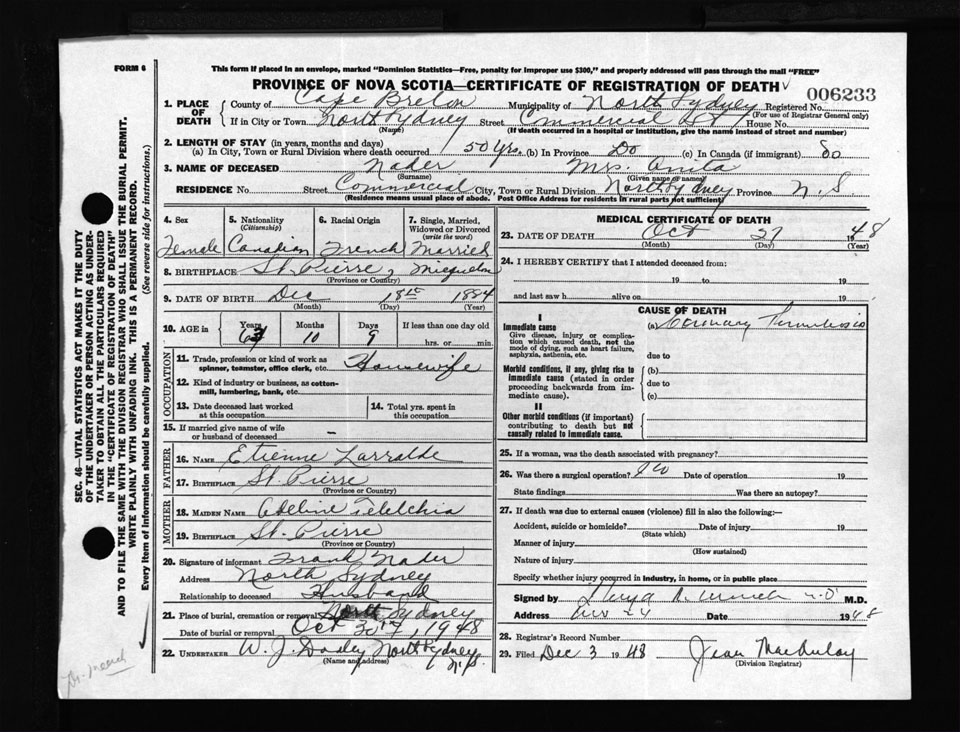 FORM 6
This form if placed in an envelope, marked "Dominion Statistics—Free, penalty for improper use $300," and properly addressed will pass through the mail "FREE"
PROVINCE OF NOVA SCOTIA—CERTIFICATE OF REGISTRATION OF DEATH
006233
1. PLACE OF DEATH
County of Cape Breton Municipality of North Sydney Registered No.
(For use of Registrar General only)
If in City or Town North Sydney Street Commercial St House No.
(Name) (If death occurred in a hospital or institution, give the name instead of street and number)
2. LENGTH OF STAY (in years, months and days)
(a) In City, Town or Rural Division where death occurred 50 yrs. (b) In Province Do (c) In Canada (if immigrant) do
3. NAME OF DECEASED Nader Mrs. Anita
(Surname) (Given name or names)
RESIDENCE No. Street Commercial City, Town or Rural Division North Sydney Province N.S.
(Residence means usual place of abode. Post Office Address for residents in rural parts not sufficient)
4. Sex
Female
5. Nationality
(Citizenship)
Canadian
6. Racial Origin
French
7. Single, Married,
Widowed or Divorced
(write the word)
Married
8. BIRTHPLACE St. Pierre, Micquelon
(Province or Country)
9. DATE OF BIRTH Dec 18th 1884
(Month) (Day) (Year)
10. AGE in
Years 63
Months 10
Days 9
If less than one day old
hrs. or min.
OCCUPATION
11. Trade, profession or kind of work as
spinner, teamster, office clerk, etc. Housewife
12. Kind of industry or business, as cotton-
mill, lumbering, bank, etc.
13. Date deceased last worked
at this occupation
14. Total yrs. spent in
this occupation
15. If married give name of wife
or husband of deceased —
FATHER
16. NAME Etienne Larralde
17. BIRTHPLACE St. Pierre
(Province or Country)
MOTHER
18. MAIDEN NAME Adeline
19. BIRTHPLACE St. Pierre
(Province or Country)
20. Signature of informant Frank Nader
Address North Sydney
Relationship to deceased Husband
21. Place of burial, cremation or removal North Sydney
Date of burial or removal Oct 30th, 1948
22. UNDERTAKER W. J. Dooley North Sydney
(Name and address) N.S.
MEDICAL CERTIFICATE OF DEATH
23. DATE OF DEATH Oct 27 1948
(Month) (Day) (Year)
24. I HEREBY CERTIFY that I attended deceased from:
19 to 19
and last saw h alive on 19
I
Immediate cause
Give disease, injury or complica-
tion which caused death, not the
mode of dying, such as heart failure,
asphyxia, asthenia, etc.
Morbid conditions, if any, giving rise to
immediate cause (stated in order
proceeding backwards from im-
mediate cause).
II
Other morbid conditions (if important)
contributing to death but not
causally related to immediate cause.
CAUSE OF DEATH
(a) Coronary Thrombosis
due to
(b)
due to
(c)
25. If a woman, was the death associated with pregnancy?
26. Was there a surgical operation? No Date of operation 19
State findings Was there an autopsy?
27. If death was due to external causes (violence) fill in also the following:—
Accident, suicide or homicide? Date of injury 19
(State which)
Manner of injury
(How sustained)
Nature of injury
Specify whether injury occurred in industry, in home, or in public place
Signed by M.D. M.D.
Address Date 1948
28. Registrar's Record Number
29. Filed Dec 3 1948 Jean MacAulay
(Division Registrar)
SEC. 46—VITAL STATISTICS ACT MAKES IT THE DUTY
OF THE UNDERTAKER OR PERSON ACTING AS UNDER-
TAKER TO OBTAIN ALL THE PARTICULARS REQUIRED
IN THE "CERTIFICATE OF REGISTRATION OF DEATH"
AND TO FILE THE SAME WITH THE DIVISION REGISTRAR WHO SHALL ISSUE THE BURIAL PERMIT.
WRITE PLAINLY WITH UNFADING INK. THIS IS A PERMANENT RECORD.
Every item of Information should be carefully supplied. (See reverse side for instructions.)